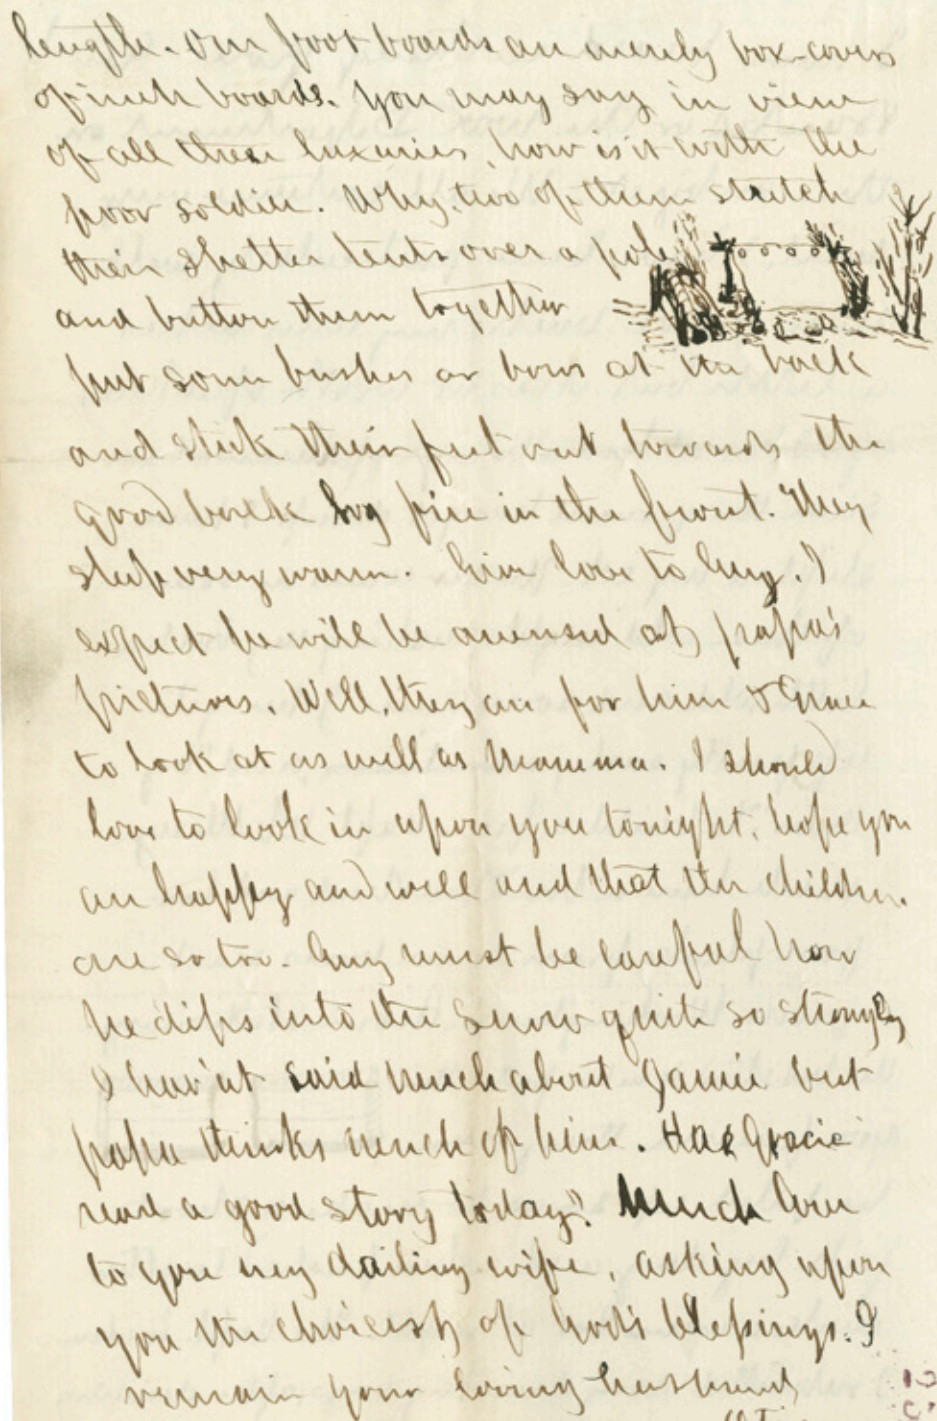 length. Our foot boards are merely box-covers
of inch boards. You may say in view
of all these luxuries, how is it with the
poor soldier. Why, two of them stretch
their shelter tents over a pole
and button them together
put some bushes or bows at its back
and stick their feet out towards the
good back log fire in the front. They
sleep very warm. Give love to Guy. I
expect he will be amused at papa's
pictures. Well, they are for him & Grace
to look at as well as Mamma. I should
love to look in upon you tonight, hope you
are happy and well and that the children
are so too. Guy must be careful how
he dips into the snow quite so strongly
I hav'nt said much about Jamie but
papa thinks much of him. Has Gracie
read a good story today? Much love
to you my darling wife, asking upon
you the choicest of God's blessings. I
remain your loving husband